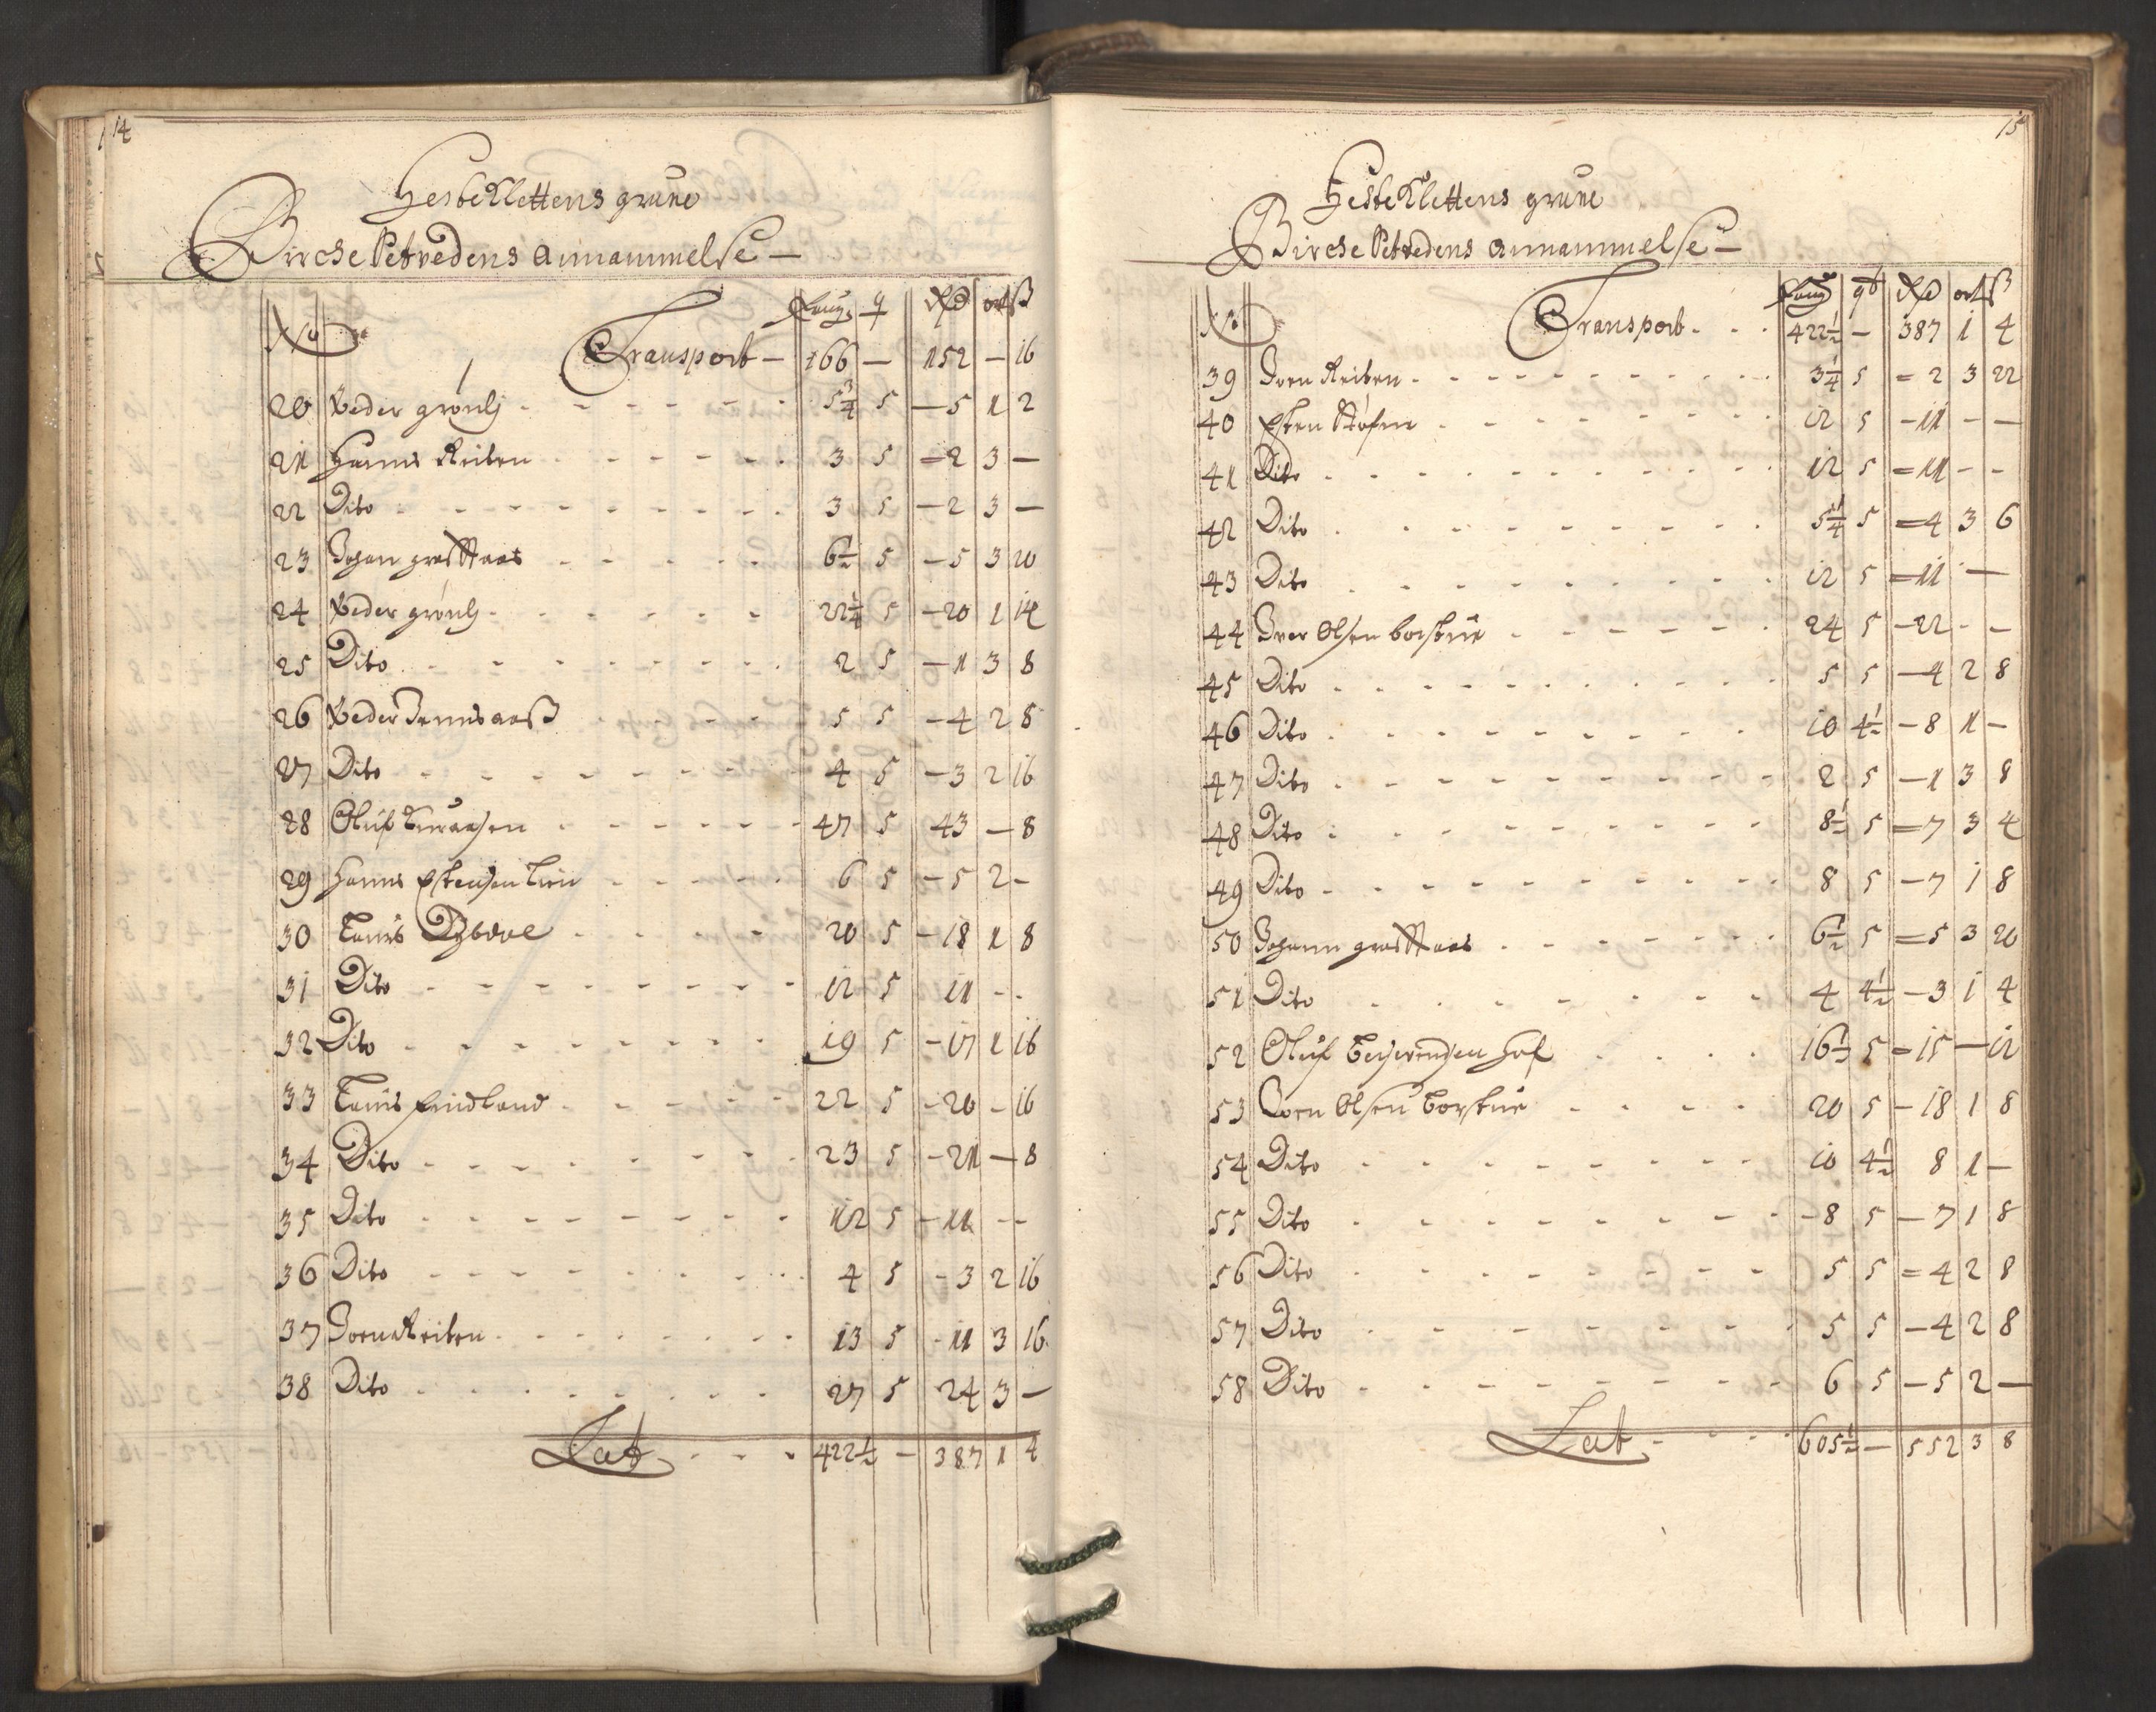 14
Hesteklettens grune
Birche Vetvedens Annammelse —
No Faug q Rd ort ß
Transport — 166 — 152 — 16
20 Peder grønlj 5 3/4 5 — 5 1 2
21 Hanns Reiten 3 5 = 2 3 —
22 Dito 3 5 — 2 3 —
23 Johan graßtaas 6 1/2 5 — 5 3 20
24 Peder grønlj 22 1/4 5 — 20 1 14
25 Dito 2 5 — 1 3 8
26 Peder 5 5 — 4 2 8
27 Dito 4 5 — 3 2 16
28 Oluf 47 5 43 — 8
29 Hanns Estensen Lien 6 5 — 5 2 —
30 Lauris 20 5 — 18 1 8
31 Dito 12 5 11 - -
32 Dito 19 5 — 17 1 16
33 Lauris findland 22 5 — 20 - 16
34 Dito 23 5 — 21 — 8
35 Dito 12 5 — 11 - -
36 Dito 4 5 - 3 2 16
37 Joen Reiten 13 5 - 11 3 16
38 Dito 27 5 24 3 —
Lat 422 1/2 — 387 1 4
15
Hesteklettens grune
Birche Vetvedens Annammelse —
No Faug qt Rd ort ß
Transport 422 1/2 — 387 1 4
39 Joen Reiten 3 1/4 5 = 2 3 22
40 Esten Støfne 12 5 — 11 — —
41 Dito 12 5 = 11 - -
42 Dito 5 1/4 5 = 4 3 6
43 Dito 12 5 = 11 —
44 Iver Olsen borstue 24 5 — 22 - -
45 Dito 5 5 — 4 2 8
46 Dito 10 4 1/2 — 8 1 —
47 Dito 2 5 — 1 3 8
48 Dito 8 1/2 5 = 7 3 4
49 Dito 8 5 — 7 1 8
50 Johann graßtaas 6 1/2 5 = 5 3 20
51 Dito 4 4 1/2 — 3 1 4
52 Oluf hof 16 1/2 5 = 15 — 12
53 Joen Olsen borstue 20 5 — 18 1 8
54 Dito 10 4 1/2 8 1 —
55 Dito - 8 5 — 7 1 8
56 Dito 5 5 = 4 2 8
57 Dito 5 5 — 4 2 8
58 Dito 6 5 — 5 2 —
Lat 605 1/2 — 552 3 8